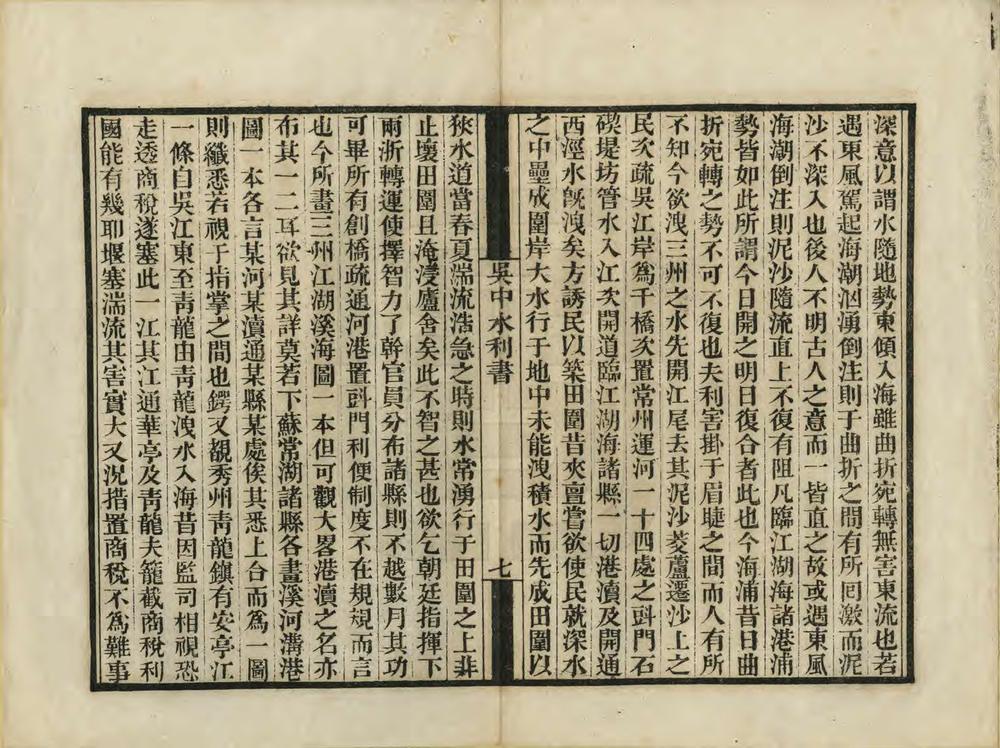 深意以謂水隨地勢東傾入海雖曲折宛轉無害東流也若
遇東風駕起海潮洶湧倒注則于曲折之間有所回激而泥
沙不深入也後人不明古人之意而一皆直之故或遇東風
海潮倒注則泥沙隨流直上不復有阻凡臨江湖海諸港浦
勢皆如此所謂今日開之明日復合者此也今海浦昔日曲
折宛轉之勢不可不復也夫利害掛于眉睫之間而人有所
不知今欲洩三州之水先開江尾去其泥沙茭蘆遷沙上之
民次疏吳江岸爲千橋次置常州運河一十四處之㪷門石
碶堤坊管水入江次開道臨江湖海諸縣一切港瀆及開通
西涇水旣洩矣方誘民以築田圍昔夾亶嘗欲使民就深水
之中壘成圍岸大水行于地中未能洩積水而先成田圍以
吳中水利書
七
狹水道當春夏湍流浩急之時則水常湧行于田圍之上非
止壞田圍且淹浸廬舍矣此不智之甚也欲乞朝廷指揮下
兩浙轉運使擇智力了幹官員分布諸縣則不越數月其功
可畢所有創橋疏通河港置㪷門利便制度不在規規而言
也今所畫三州江湖溪海圖一本但可觀大畧港瀆之名亦
布其一二耳欲見其詳莫若下蘇常湖諸縣各畫溪河溝港
圖一本各言某河某瀆通某縣某處俟其悉上合而爲一圖
則纖悉若視于指掌之間也鍔又覩秀州靑龍鎭有安亭江
一條自吳江東至靑龍由靑龍洩水入海昔因監司相視恐
走透商稅遂塞此一江其江通華亭及靑龍夫籠截商稅利
國能有幾耶堰塞湍流其害實大又況措置商稅不爲難事